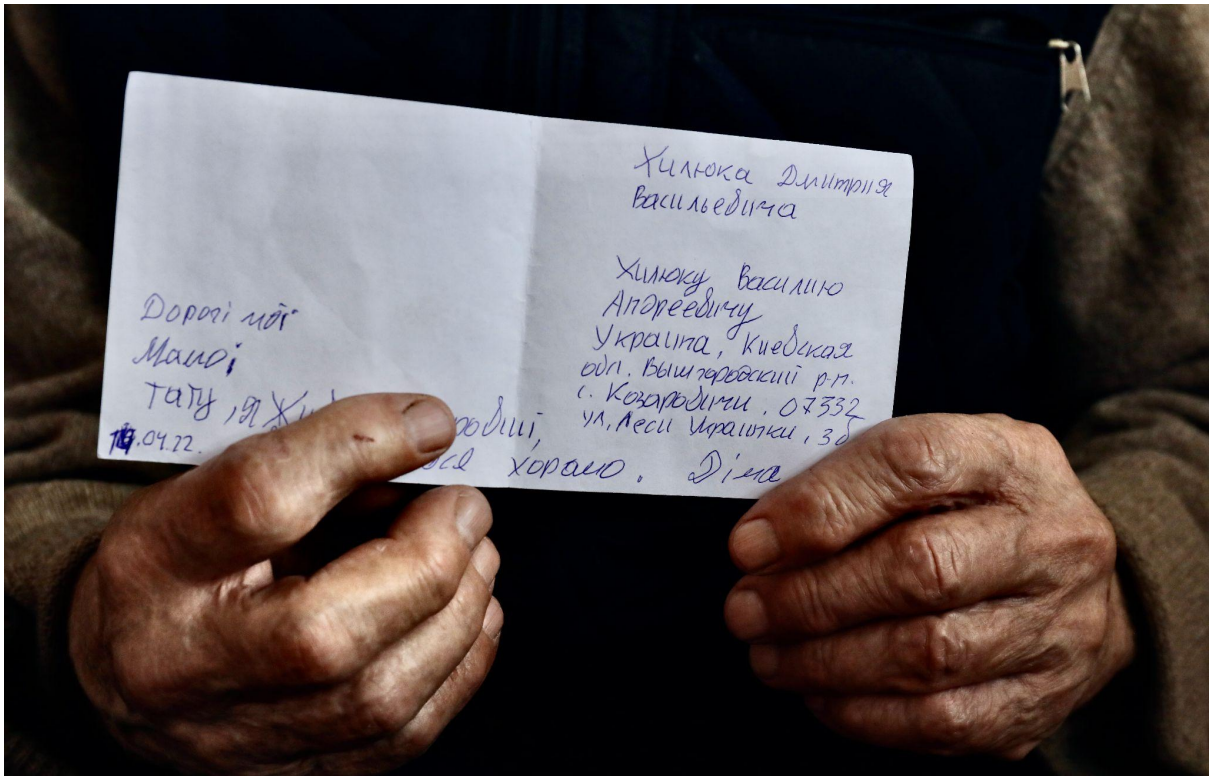 Хилюка Дмитрия
Васильевича
Хилюку Василию
Андреевичу
Украина, Киевская
обл. Вышгородский р-н.
с. Козаровичи. 07332
ул. Леси Украинки, 36
Дорогі мої
Мамо і
тату, я
04.22.
хорошо. Діма